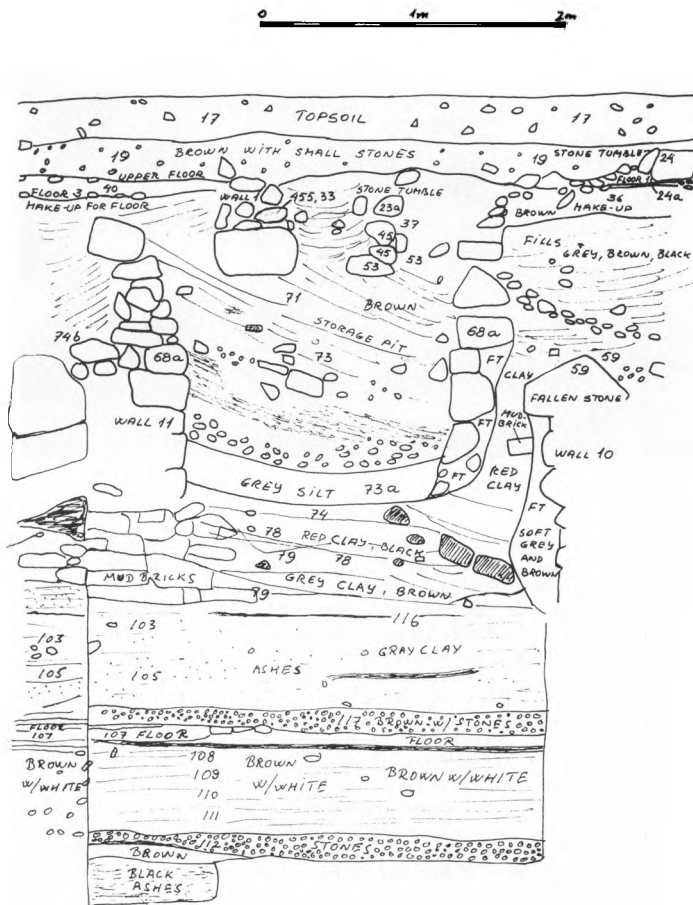 0 1m 2m
17 TOPSOIL 17
19 BROWN WITH SMALL STONES 19 STONE TUMBLE 24
UPPER FLOOR
FLOOR 1
FLOOR 3 40
MAKE-UP FOR FLOOR
WALL 1
455,33
STONE TUMBLE
23a
37
45
45
53 53
BROWN
36
MAKE-UP
24a
FILLS
GREY, BROWN, BLACK
71
BROWN
STORAGE PIT
73
74b
68a
68a
FT
CLAY
59
59
FALLEN STONE
WALL 11
FT
MUD.
BRICK
WALL 10
RED
CLAY
FT
GREY SILT 73a
FT
SOFT
GREY
AND
BROWN
74
78 RED CLAY, BLACK
79 78
MUD BRICKS
GREY CLAY, BROWN
79
116
103
103
GRAY CLAY
105
105
ASHES
117 BROWN W/STONES
FLOOR
107
107 FLOOR
FLOOR
BROWN
W/WHITE
108
109
110
111
BROWN
W/WHITE
BROWN W/WHITE
112 STONES
BROWN
BLACK
ASHES